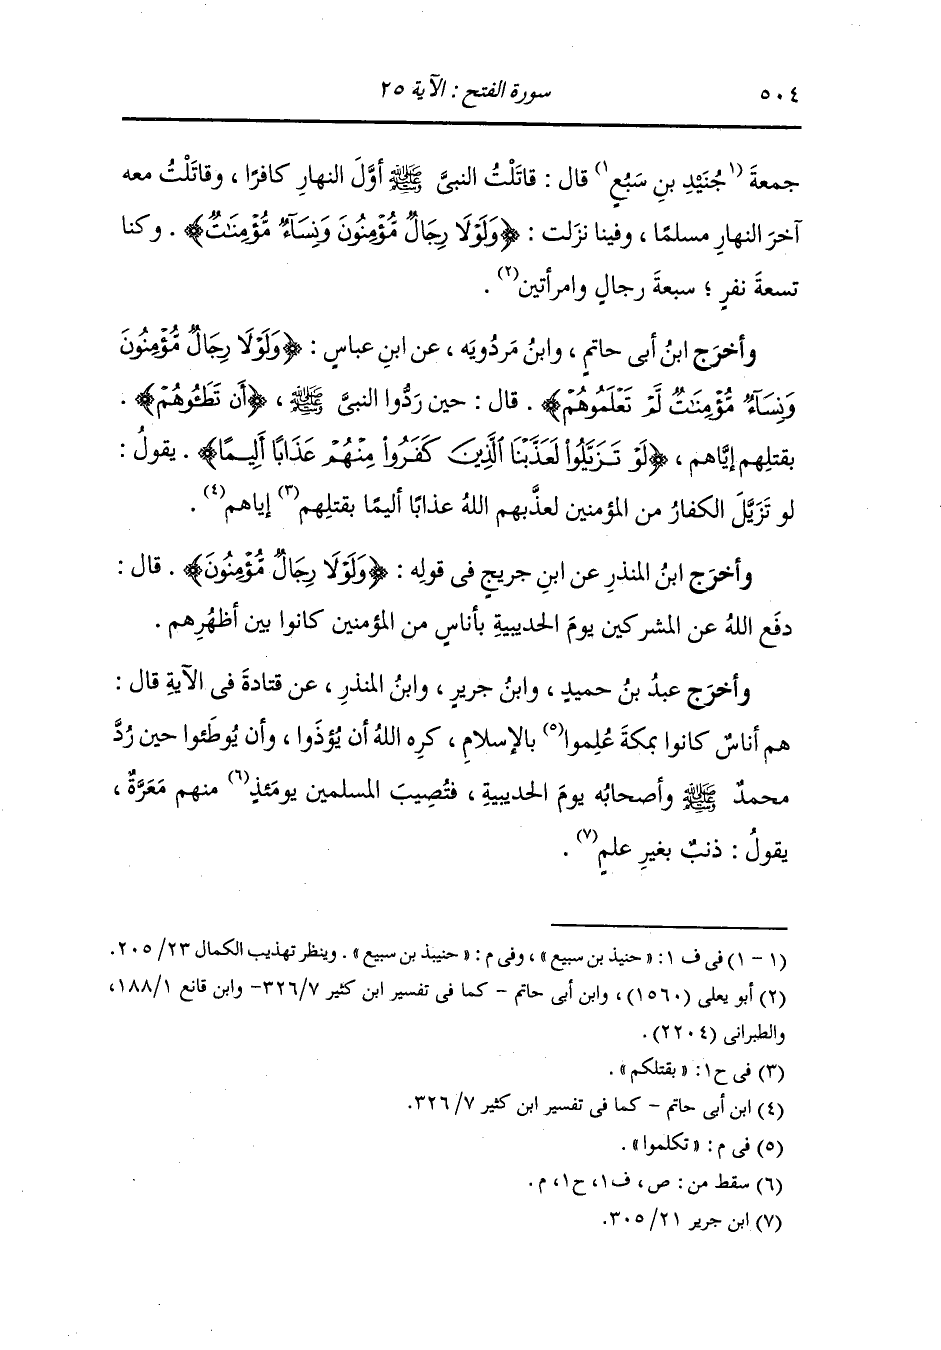 ٥٠٤ سورة الفتح : الآية ٢٥
جمعةَ (١جُنَيْدِ بنِ سَبُعٍ١) قال : قاتَلْتُ النبىَّ ﷺ أوَّلَ النهارِ كافرًا ، وقاتَلْتُ معه
آخرَ النهارِ مسلمًا ، وفينا نزَلت : ﴿وَلَوْلَا رِجَالٌ مُّؤْمِنُونَ وَنِسَآءٌ مُّؤْمِنَٰتٌ﴾ . وكنا
تسعةَ نفرٍ ؛ سبعةَ رجالٍ وامرأتين(٢) .
وأخرَج ابنُ أبى حاتمٍ ، وابنُ مَردُويَه ، عن ابنِ عباسٍ : ﴿وَلَوْلَا رِجَالٌ مُّؤْمِنُونَ
وَنِسَآءٌ مُّؤْمِنَٰتٌ لَّمْ تَعْلَمُوهُمْ﴾ . قال : حين رَدُّوا النبىَّ ﷺ ، ﴿أَن تَطَـُٔوهُمْ﴾ .
بقتلِهم إيَّاهم ، ﴿لَوْ تَزَيَّلُوا۟ لَعَذَّبْنَا ٱلَّذِينَ كَفَرُوا۟ مِنْهُمْ عَذَابًا أَلِيمًا﴾ . يقولُ :
لو تَزَيَّلَ الكفارُ من المؤمنين لعذَّبهم اللهُ عذابًا أليمًا بقتلِهم(٣) إياهم(٤) .
وأخرَج ابنُ المنذرِ عن ابنِ جريجٍ فى قولِه : ﴿وَلَوْلَا رِجَالٌ مُّؤْمِنُونَ﴾ . قال :
دفَع اللهُ عن المشركين يومَ الحديبيةِ بأناسٍ من المؤمنين كانوا بين أظهُرِهم .
وأخرَج عبدُ بنُ حميدٍ ، وابنُ جريرٍ ، وابنُ المنذرِ ، عن قتادةَ فى الآيةِ قال :
هم أناسٌ كانوا بمكةَ عُلِموا(٥) بالإسلامِ ، كرِه اللهُ أن يُؤذَوا ، وأن يُوطَئوا حين رُدَّ
محمدٌ ﷺ وأصحابُه يومَ الحديبيةِ ، فتُصِيبَ المسلمين يومَئذٍ(٦) منهم مَعَرَّةٌ ،
يقولُ : ذنبٌ بغيرِ علمٍ(٧) .
(١ - ١) فى ف ١: « حنيذ بن سبيع » ، وفى م : « حنيبذ بن سبيع » . وينظر تهذيب الكمال ٢٣/ ٢٠٥.
(٢) أبو يعلى (١٥٦٠) ، وابن أبى حاتم - كما فى تفسير ابن كثير ٣٢٦/٧- وابن قانع ١٨٨/١،
والطبرانى (٢٢٠٤) .
(٣) فى ح١: « بقتلكم » .
(٤) ابن أبى حاتم - كما فى تفسير ابن كثير ٧/ ٣٢٦.
(٥) فى م : « تكلموا » .
(٦) سقط من : ص، ف١، ح١، م .
(٧) ابن جرير ٢١/ ٣٠٥.